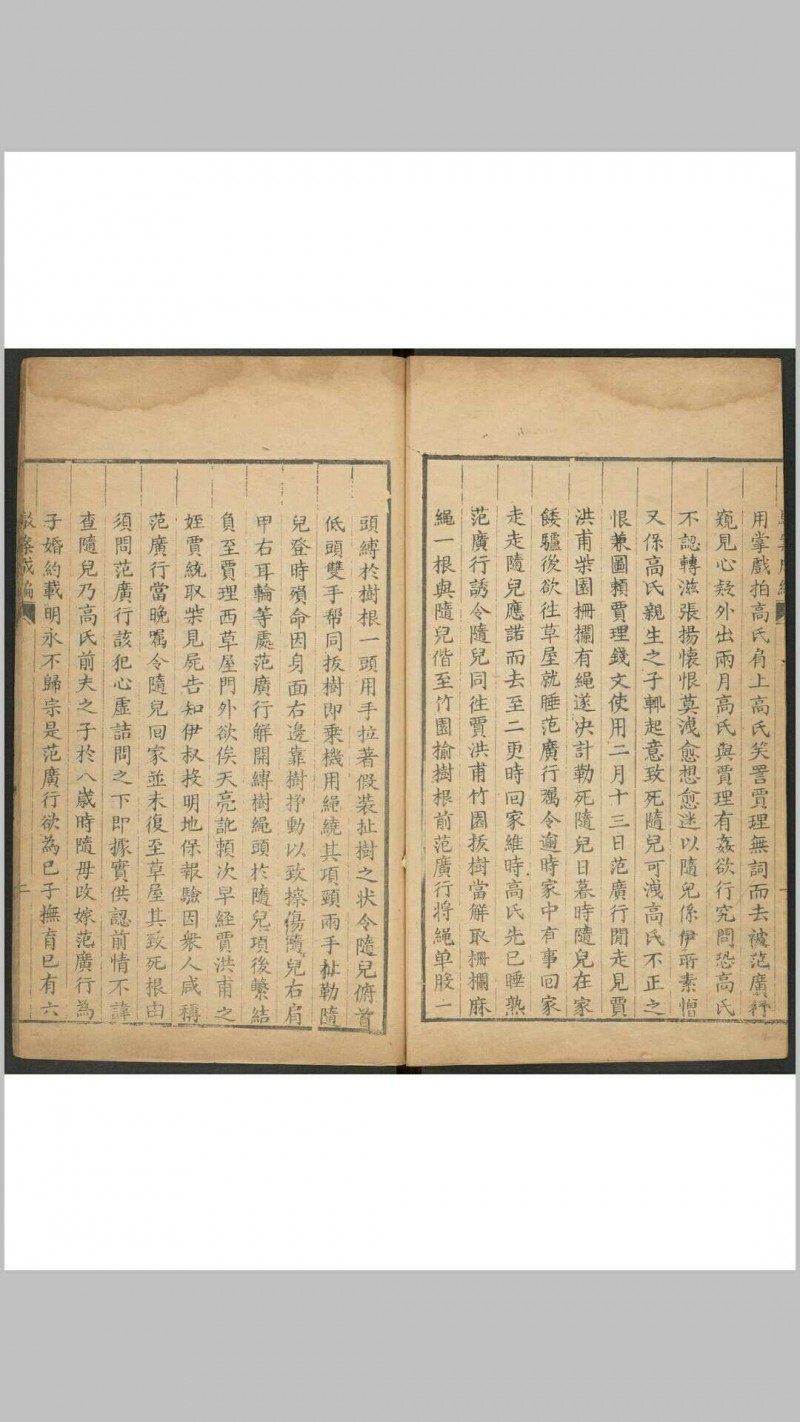 用掌戲拍高氏肩上高氏笑詈賈理無詞而去被范廣行
窺見心疑外出兩月高氏與賈理有姦欲行究問恐高氏
不認轉滋張揚懷恨莫洩愈想愈迷以隨兒係伊所素憎
又係高氏親生之子輒起意致死隨兒可洩高氏不正之
恨兼圖賴賈理錢文使用二月十三日范廣行閒走見賈
洪甫柴園柵攔有繩遂决計勒死隨兒日暮時隨兒在家
餧驢後欲往草屋就睡范廣行囑令逾時家中有事回家
走走隨兒應諾而去至二更時回家維時高氏先已睡熟
范廣行誘令隨兒同往賈洪甫竹園拔樹當解取柵攔麻
繩一根與隨兒偕至竹園榆樹根前范廣行將繩单股一
頭縛於樹根一頭用手拉著假装扯樹之状令隨兒俯首
低頭雙手帮同拔樹即乗機用繩繞其項頭兩手扯勒隨
兒登時殞命因身面右邊靠樹掙動以致擦傷隨兒右肩
甲右耳輪等處范廣行解開縛樹繩頭於隨兒項後繫結
負至賈理西草屋門外欲俟天亮訛頼次早経賈洪甫之
姪賈統取柴見屍告知伊叔投明地保報驗因衆人咸稱
范廣行當晚囑令隨兒回家並未復至草屋其致死根由
須問范廣行該犯心虛詰問之下即據實供認前情不諱
查隨兒乃高氏前夫之子於八歲時隨母改嫁范廣行為
子婚約載明永不歸宗是范廣行欲為已子撫育已有六
駁案成編
二